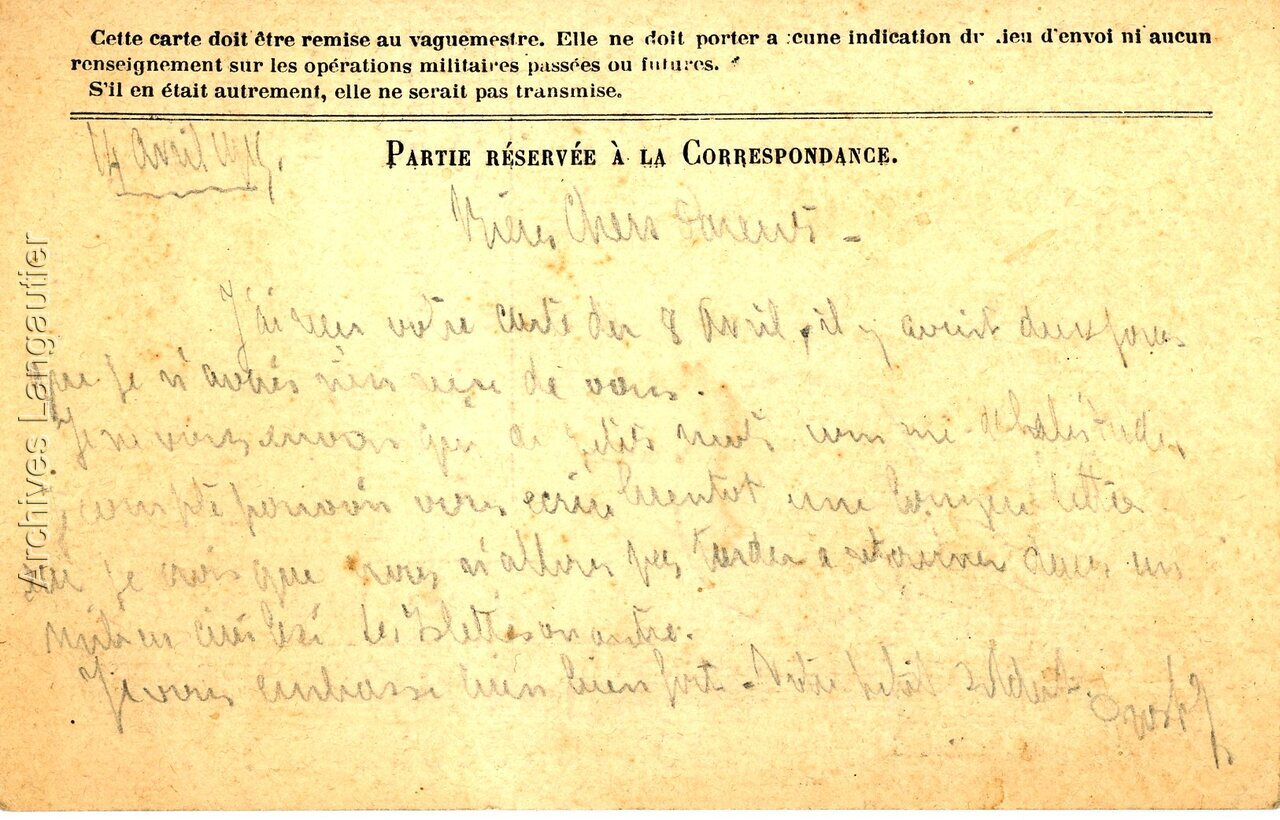 Cette carte doit être remise au vaguemestre. Elle ne doit porter aucune indication du lieu d'envoi ni aucun
renseignement sur les opérations militaires passées ou futures.
S'il en était autrement, elle ne serait pas transmise.
14 Avril 1915.
PARTIE RÉSERVÉE À LA CORRESPONDANCE.
Biens Chers Parents -
J'ai reçu votre carte du 8 Avril, il y avait deux jours
que je n'avais rien reçu de vous.
Je ne vous envois que de petits mots comme d'habitude,
je compte pouvoir vous ecrire bientot une longue lettre
car je crois que nous n'allons pas tarder a retourner dans un
milieu civilisé Les Islettes ou autre.
Je vous embrasse bien bien fort - Votre petit
Archives Langautier